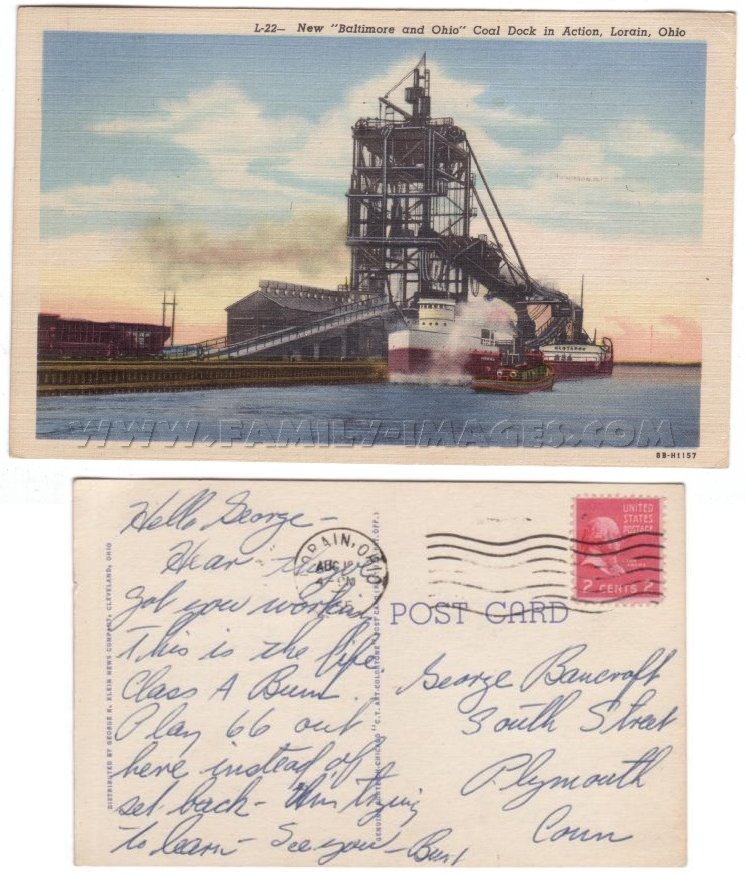 L-22— New "Baltimore and Ohio" Coal Dock in Action, Lorain, Ohio
WWW.FAMILY-IMAGES.COM
8B-H1157
Hello George –
Hear they've
got you working
This is the life
Class A Bum.
Play 66 out
here instead of
set back – I'm trying
to learn – See you – Burt
DISTRIBUTED BY GEORGE R. KLEIN NEWS COMPANY, CLEVELAND, OHIO
LORAIN, OHIO
AUG
PM
UNITED
STATES
POSTAGE
2 CENTS 2
POST CARD
C.T. ART-COLORTONE POST CARD
George Bancroft
South Street
Plymouth
Conn